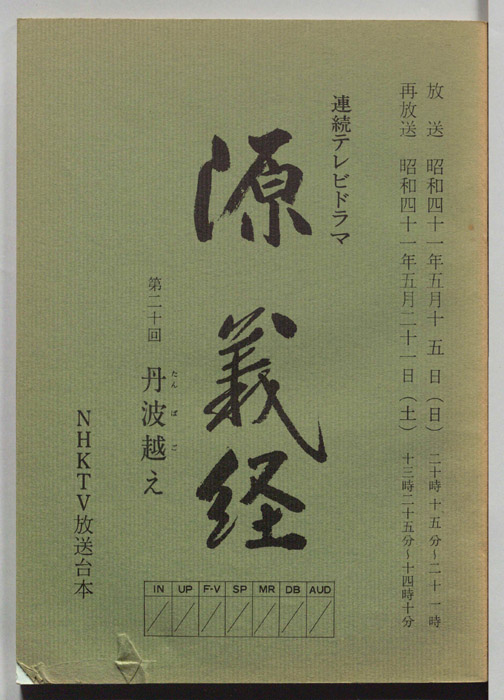 放送 昭和四十一年五月十五日(日) 二十時十五分~二十一時
再放送 昭和四十一年五月二十一日(土) 十三時二十五分~十四時十分
連続テレビドラマ
源義経
第二十回 丹波越え
たんばご
NHKTV放送台本
IN UP F-V SP MR DB AUD